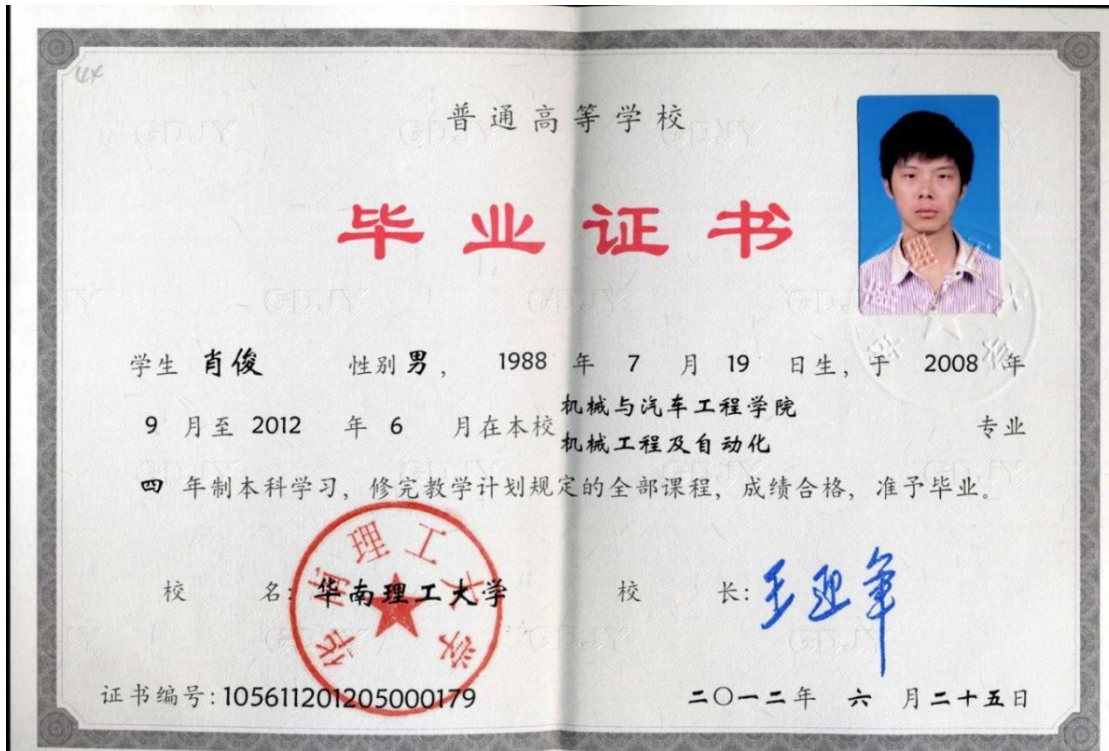 普通高等学校
毕业证书
学生 肖俊 性别 男, 1988 年 7 月 19 日生, 于 2008 年
9 月至 2012 年 6 月在本校 机械与汽车工程学院 机械工程及自动化 专业
四 年制本科学习, 修完教学计划规定的全部课程, 成绩合格, 准予毕业。
华南理工大学
校 名: 华南理工大学 校 长: 王迎军
证书编号: 105611201205000179 二〇一二年 六 月二十五日